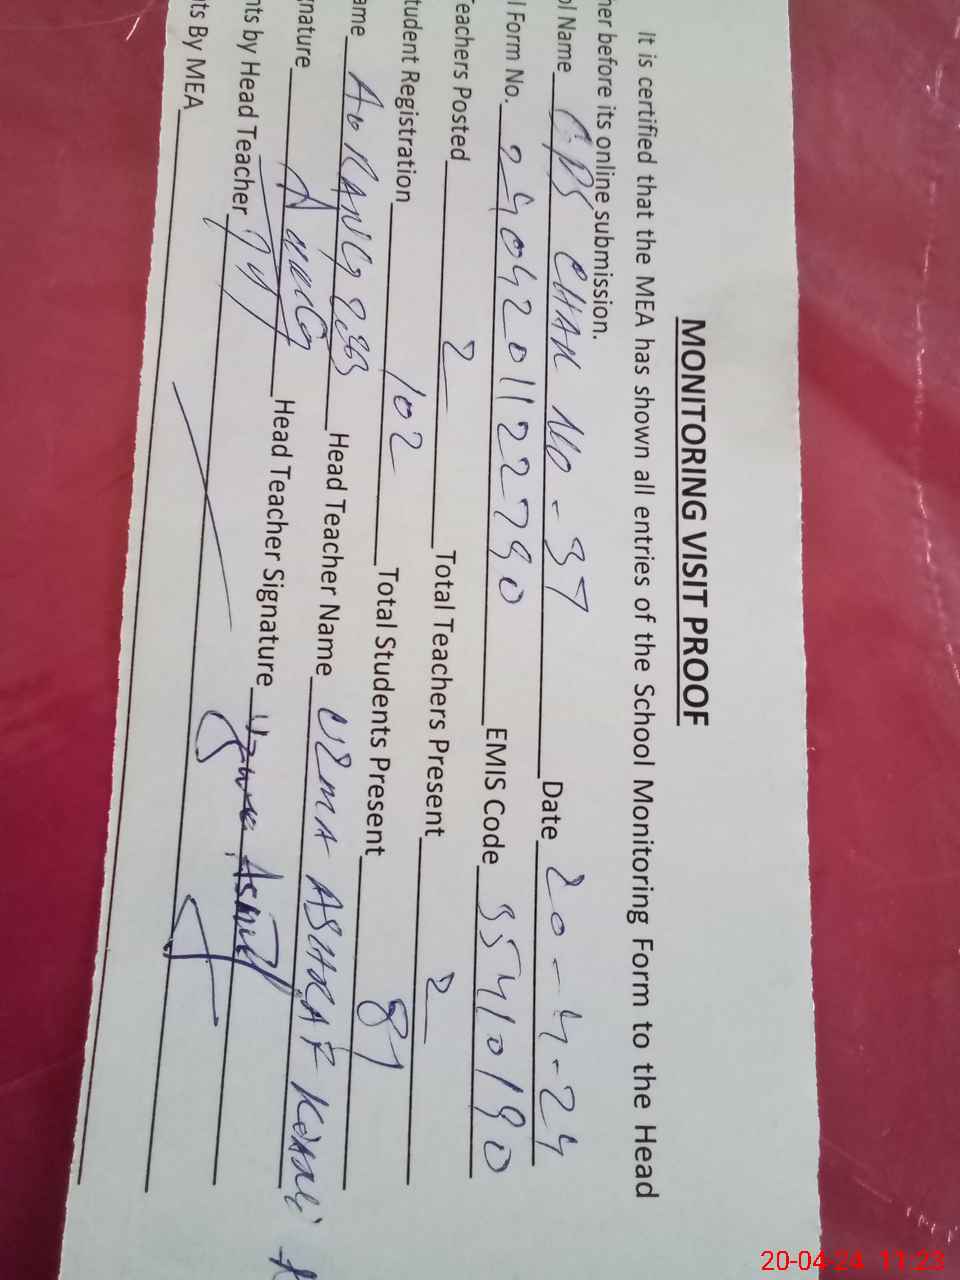 MONITORING VISIT PROOF
It is certified that the MEA has shown all entries of the School Monitoring Form to the Head
her before its online submission.
ol Name GPS CHAK NO - 37 Date 20-4-24
l Form No. 2404201122790 EMIS Code 35410190
Teachers Posted 2 Total Teachers Present 2
tudent Registration 102 Total Students Present 81
ame AURANGZEB Head Teacher Name UZMA ASHRAF
gnature Head Teacher Signature Uzma Ashraf
nts by Head Teacher
ts By MEA
20-04-24 11:23